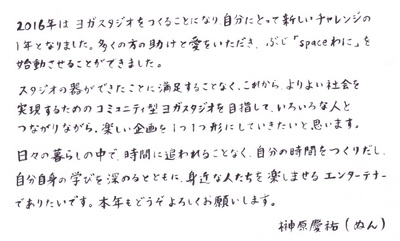 2016年は ヨガスタジオをつくることになり、自分にとって新しいチャレンジの
1年となりました。多くの方の助けと愛をいただき、ぶじ「spaceわに」を
始動させることができました。
スタジオの器ができたことに満足することなく、これから、よりよい社会を
実現するためのコミュニティ型ヨガスタジオを目指して、いろいろな人と
つながりながら、楽しい企画を1つ1つ形にしていきたいと思います。
日々の暮らしの中で、時間に追われることなく、自分の時間をつくりだし、
自分自身の学びを深めるとともに、身近な人たちを楽しませるエンターテナー
でありたいです。本年もどうぞよろしくお願いします。
榊原慶祐(ぬん)